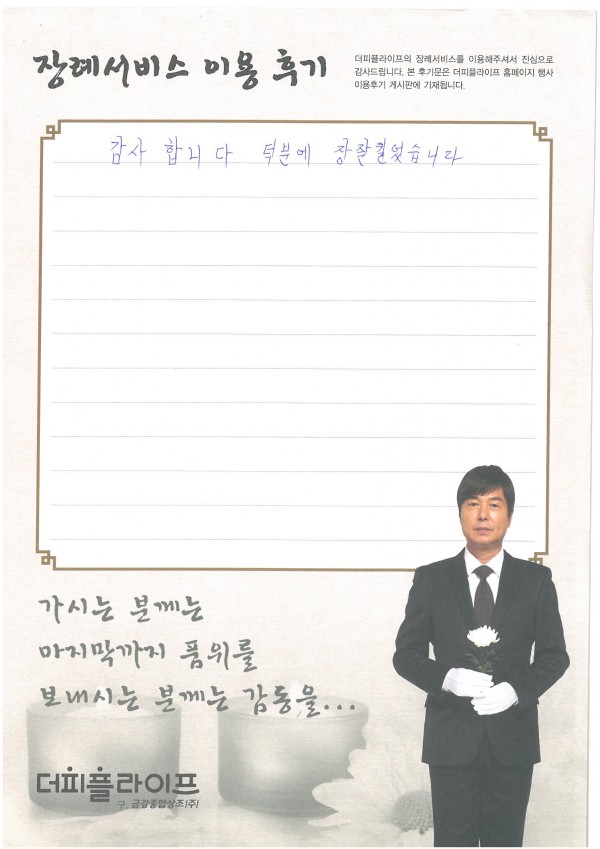 장례서비스 이용 후기
더피플라이프의 장례서비스를 이용해주셔서 진심으로
감사드립니다. 본 후기문은 더피플라이프 홈페이지 행사
이용후기 게시판에 기재됩니다.
감사 합니다 덕분에 장잘치렀습니다
가시는 분께는
마지막까지 품위를
보내시는 분께는 감동을...
더피플라이프
구. 금강종합상조(주)